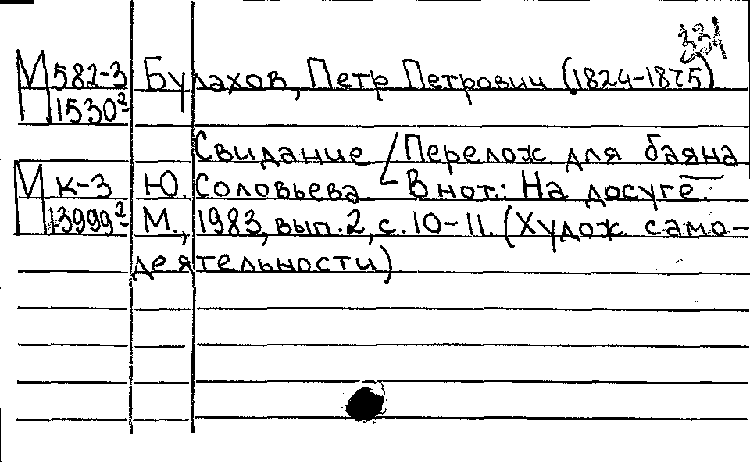 331
М 582-3 Булахов, Петр Петрович (1824-1875)
П 1530²
Свидание / Перелож для баяна
М к-3 Ю. Соловьева. - В нот.: На досуге.
П 13999² М., 1983, вып. 2, с. 10-11. (Худож. само-
деятельности)